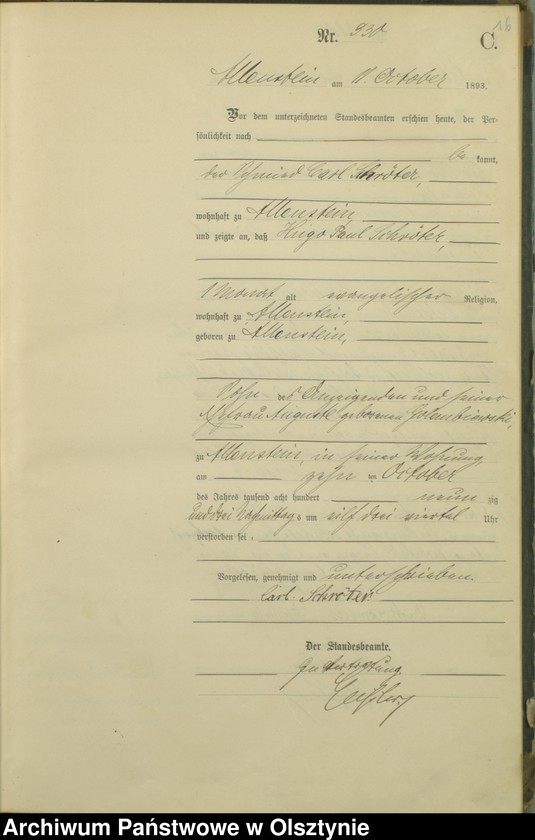 16
Nr. 930
C.
Allenstein am 11. October 1893.
Vor dem unterzeichneten Standesbeamten erschien heute, der Per-
sönlichkeit nach
be kannt,
der Schmied Carl Schröter,
wohnhaft zu Allenstein,
und zeigte an, daß Hugo Paul Schröter,
1 Monat alt evangelischer Religion,
wohnhaft zu Allenstein,
geboren zu Allenstein,
Sohn des Anzeigenden und seiner
Ehefrau Auguste geborenen Golembiewski,
zu Allenstein, in seiner Wohnung
am zehn ten October
des Jahres tausend acht hundert neun zig
und drei Vormittags um eilf drei viertel Uhr
verstorben sei.
Vorgelesen, genehmigt und unterschrieben.
Carl Schröter
Der Standesbeamte.
In Vertretung.
Archiwum Państwowe w Olsztynie